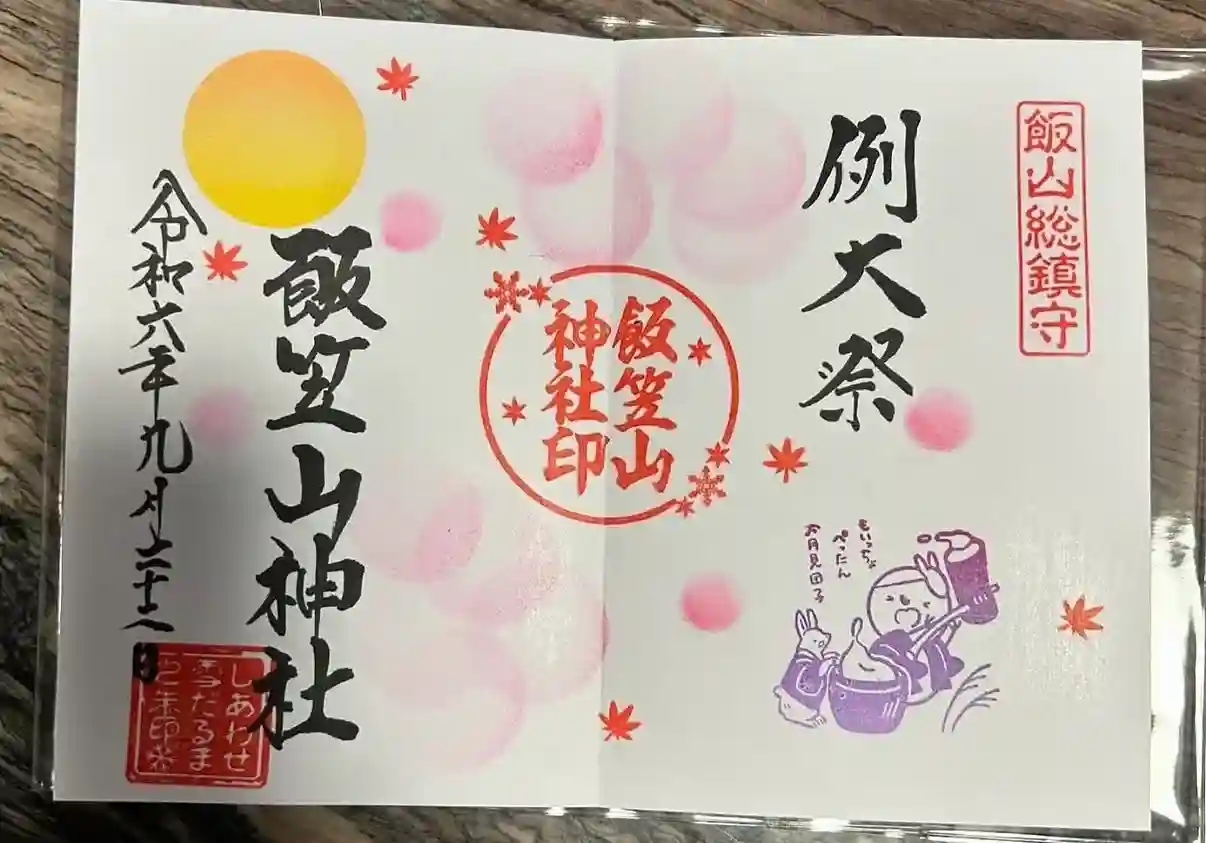 飯山総鎮守
例大祭
もいっちょ
ぺったん
お月見団子
飯笠山
神社印
飯笠山神社
令和六年九月二十二日
しあわせ
雪だるま
ご朱印